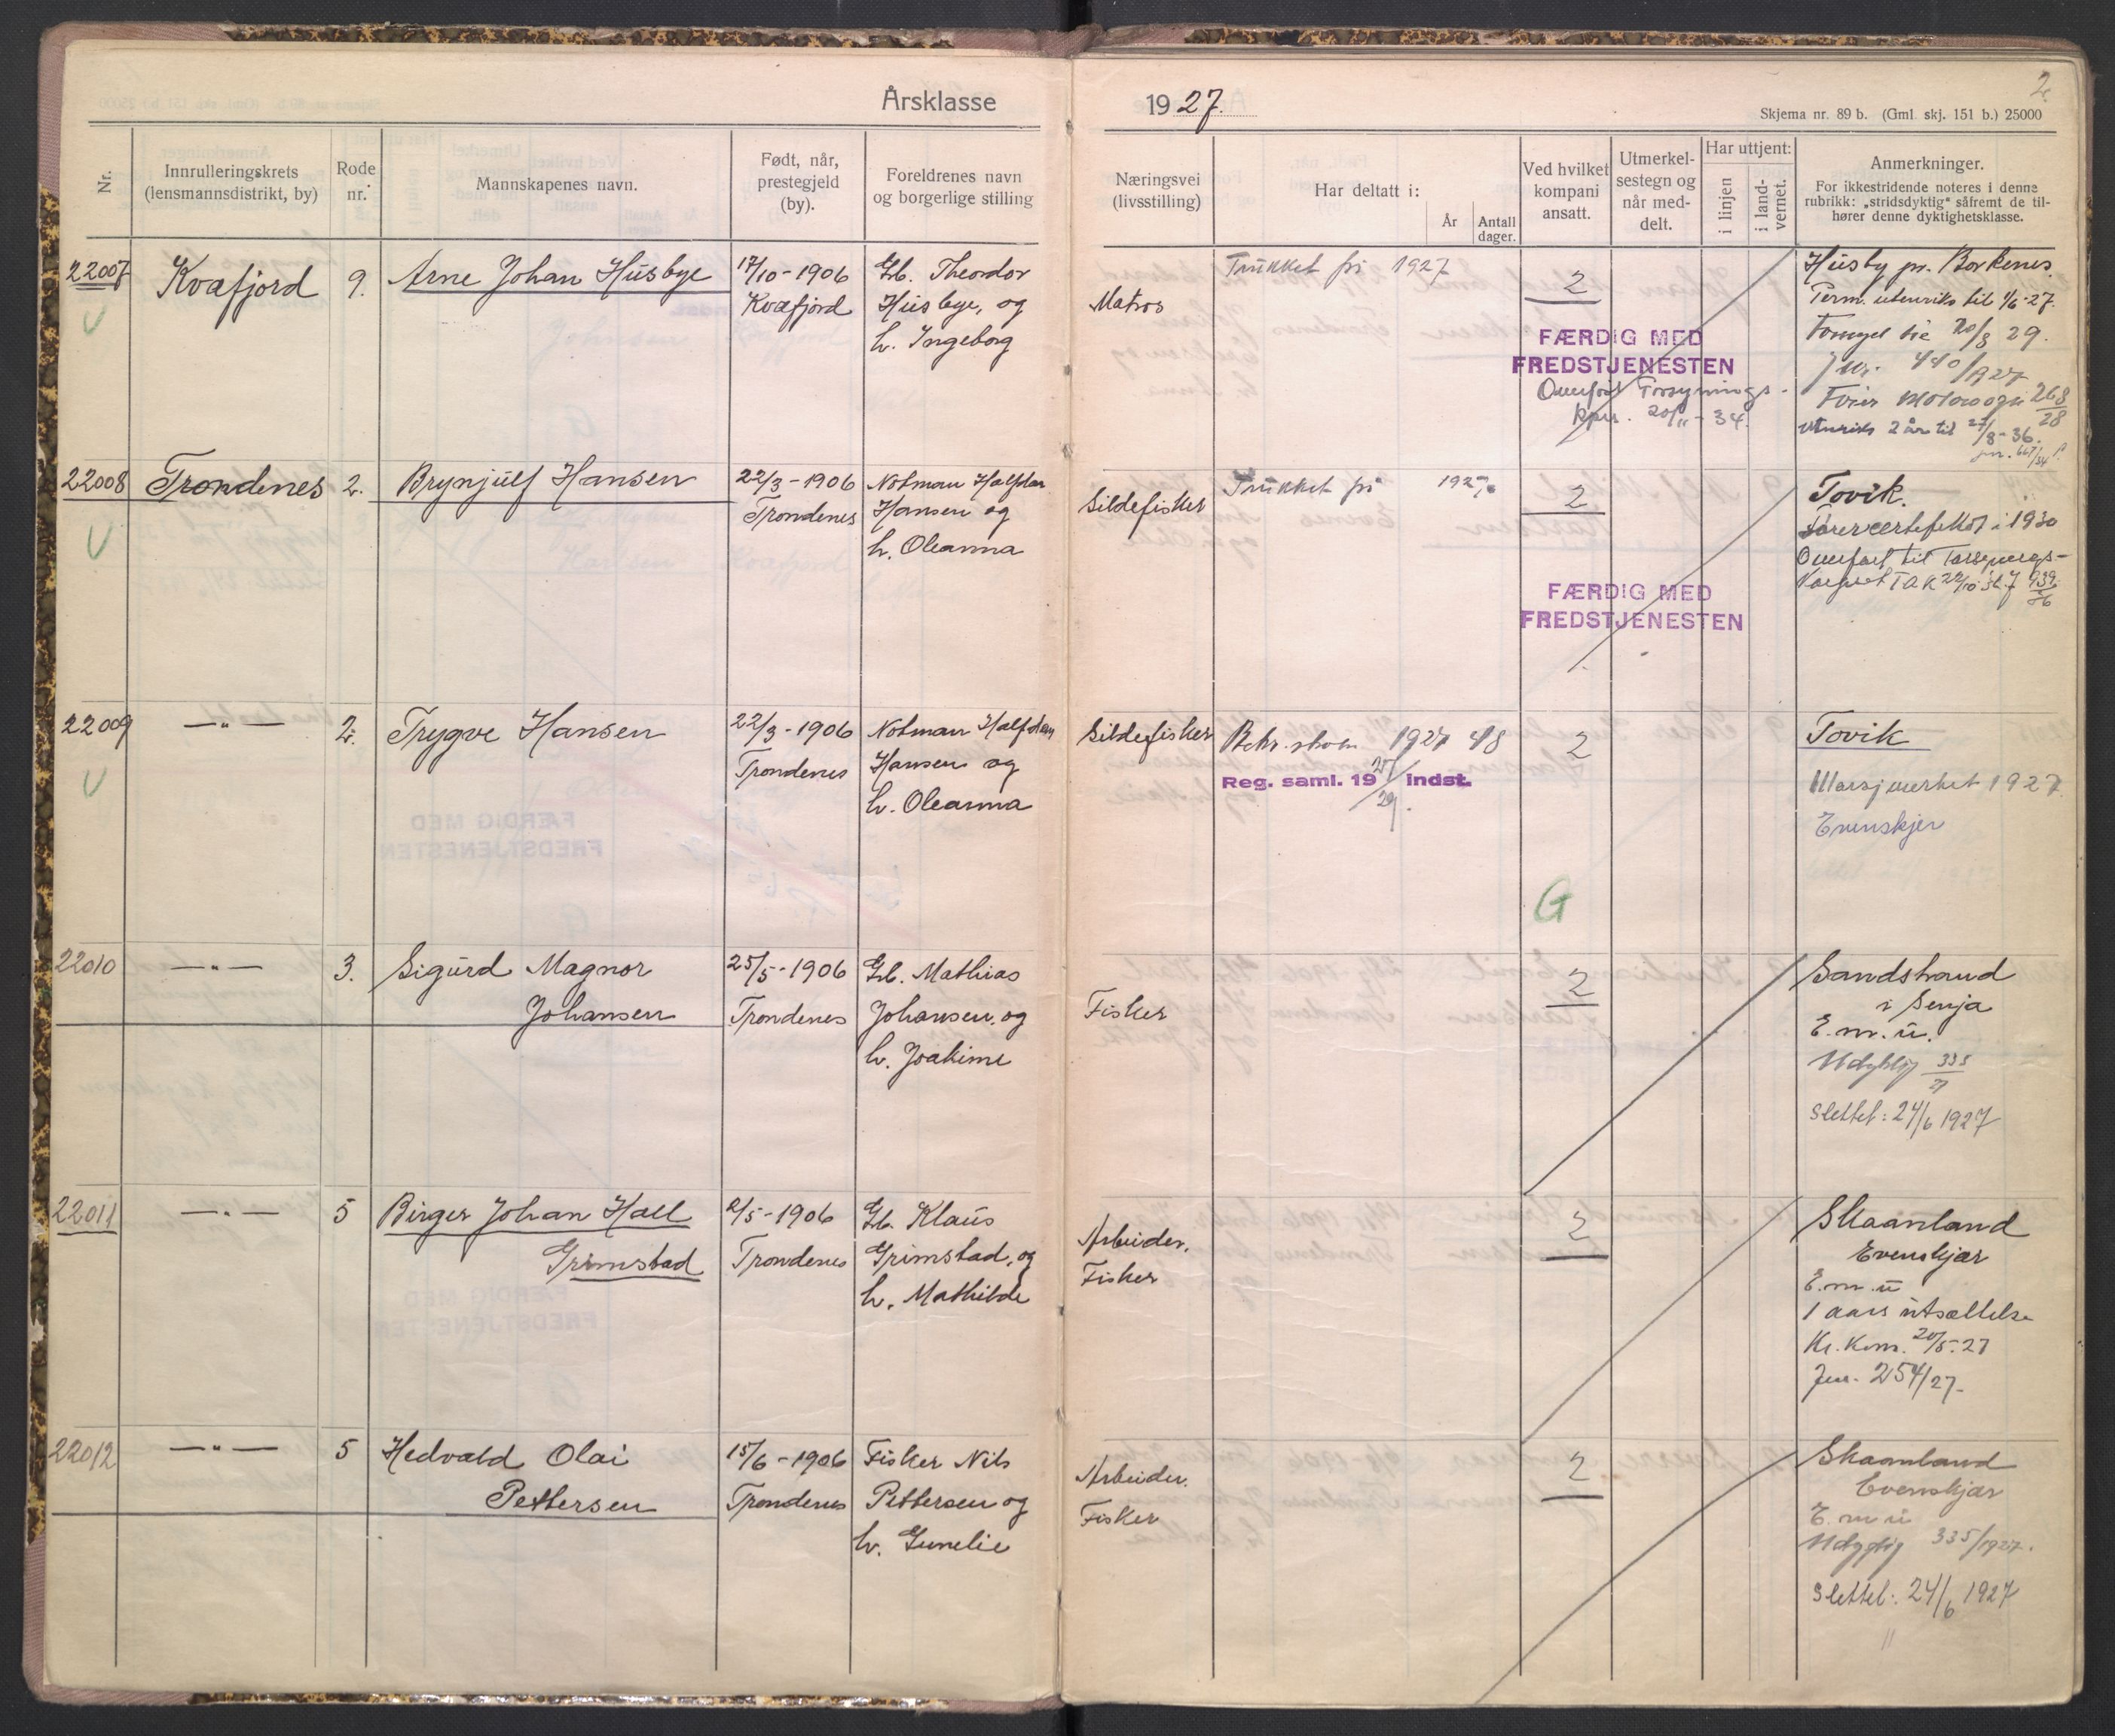 Årsklasse
Nr.
Innrulleringskrets
(lensmannsdistrikt, by)
Rode
nr.
Mannskapenes navn.
Født, når,
prestegjeld
(by).
Foreldrenes navn
og borgerlige stilling
22007
Kvæfjord
9.
Arne Johan Husbye
17/10-1906
Kvæfjord
Gb. Theodor
Husbye, og
h. Ingeborg
22008
Trondenes
2.
Brynjulf Hansen
22/3-1906
Trondenes
Notman Halfdan
Hansen og
h. Oleanna
22009
—„—
2.
Trygve Hansen
22/3-1906
Trondenes
Notman Halfdan
Hansen og
h. Oleanna
22010
—„—
3.
Sigurd Magnor
Johansen
25/5-1906
Trondenes
Gb. Mathias
Johansen, og
h. Joakime
22011
—„—
5
Birger Johan Hall
Grimstad
2/5-1906
Trondenes
Gb. Klaus
Grimstad, og
h. Mathilde
22012
—„—
5
Hedvald Olai
Pettersen
15/6-1906
Trondenes
Fisker Nils
Pettersen og
h. Gunelie
1927.
2.
Skjema nr. 89 b. (Gml. skj. 151 b.) 25000
Næringsvei
(livsstilling)
Har deltatt i:
År
Antall
dager.
Ved hvilket
kompani
ansatt.
Utmerkel-
sestegn og
når med-
delt.
Har uttjent:
i linjen
i land-
vernet.
Anmerkninger.
For ikkestridende noteres i denne
rubrikk: „stridsdyktig" såfremt de til-
hører denne dyktighetsklasse.
Matros
Trukket fri 1927
2
FÆRDIG MED
FREDSTJENESTEN
Overført Forsynings-
kpn. 20/11-34.
Husby pr. Borkenes.
Perm. utenriks til 1/6-27.
20/8 29.
J.nr. 440/1927
268/28
Utenriks 2 år til 27/8-36.
Sildefisker
Trukket fri 1927
2
FÆRDIG MED
FREDSTJENESTEN
Tovik.
i 1930
Overført til Forsynings-
Sildefisker
Rekr. skolen 1927 48
Reg. saml. 19 27/29 indst.
2
G
Tovik
Marsjmerket 1927.
Evenskjer
Fisker
2
Sandstrand
i Senja
E.m.u.
Udyktig 335/27
Slettet: 24/6 1927
Arbeider.
Fisker
2
Skaanland
Evenskjær
E.m.u
1 aars utsættelse
Kr. Kom. 20/5-27
Jnr. 254/27-
Arbeider.
Fisker
2
Skaanland
Evenskjær
E.m.u
Udyktig 335/1927.
Slettet: 24/6 1927